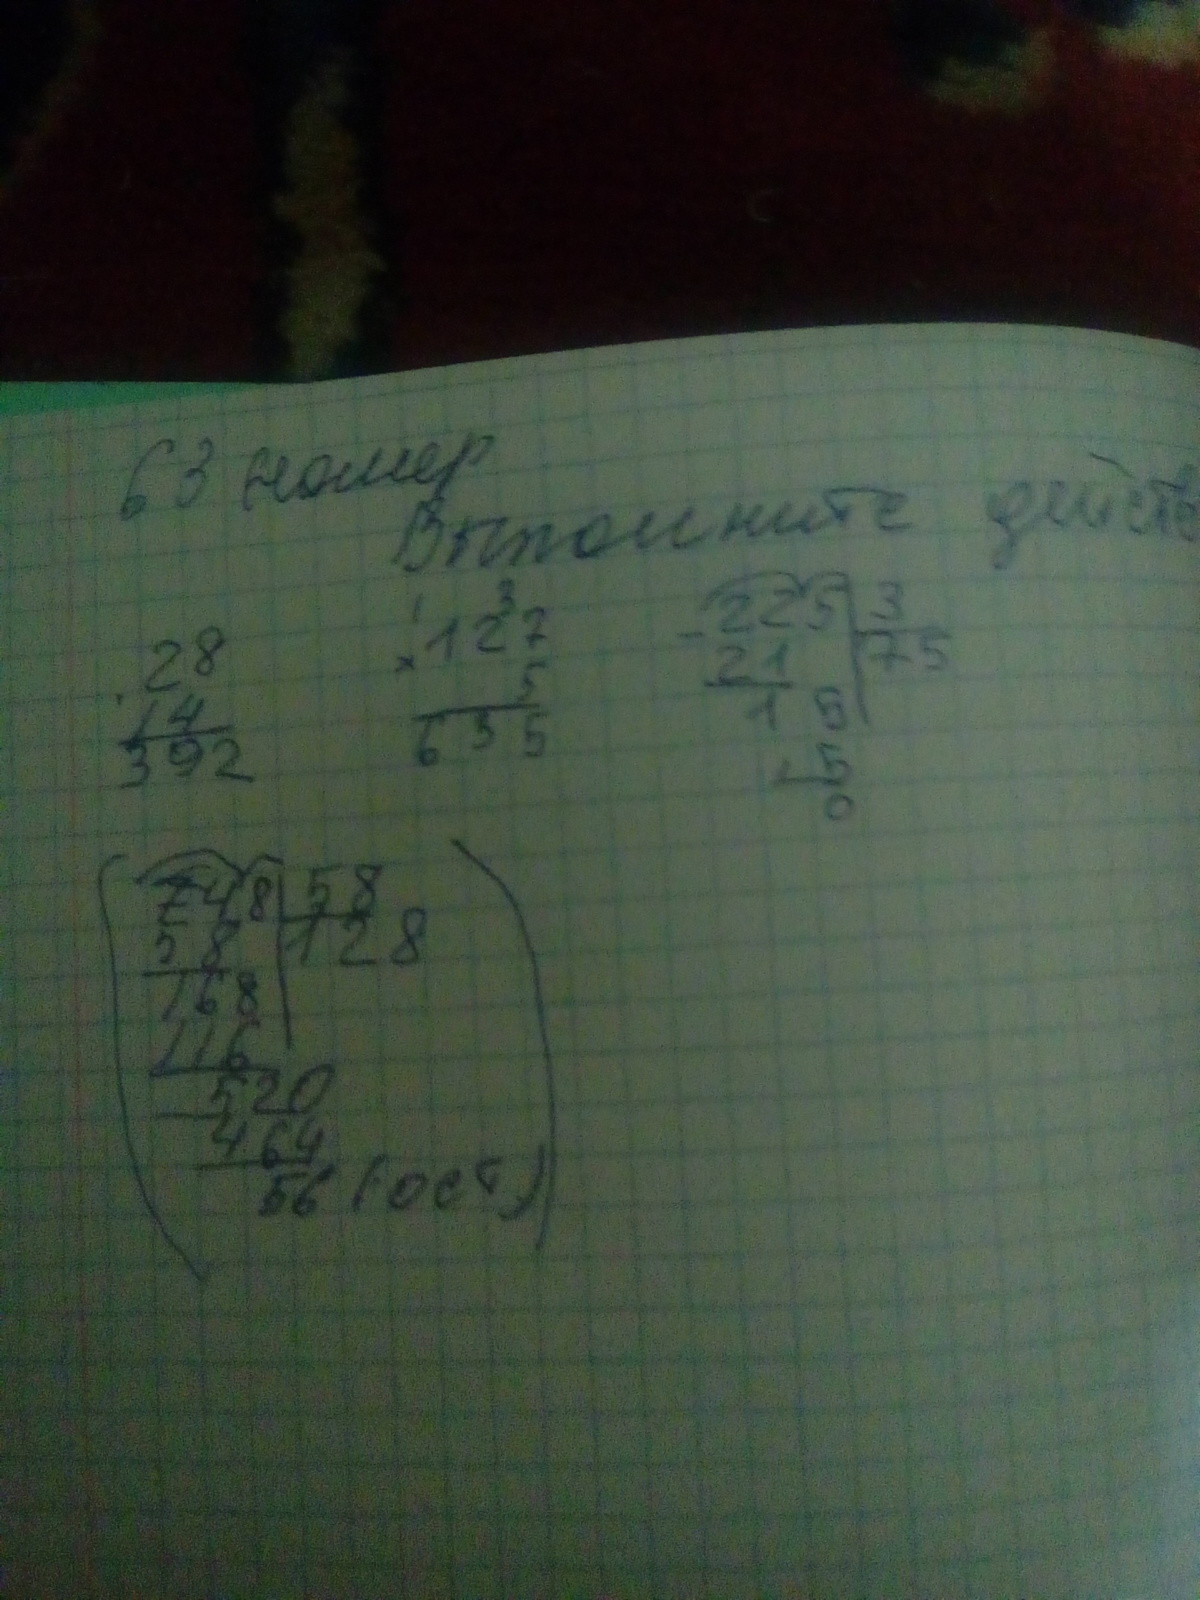 63 номер
Выполните действ
28
14
392
1 3
× 127
5
635
- 225 | 3
21 | 75
15
15
0
748 | 58
58 | 128
168
116
520
464
56 (ост)